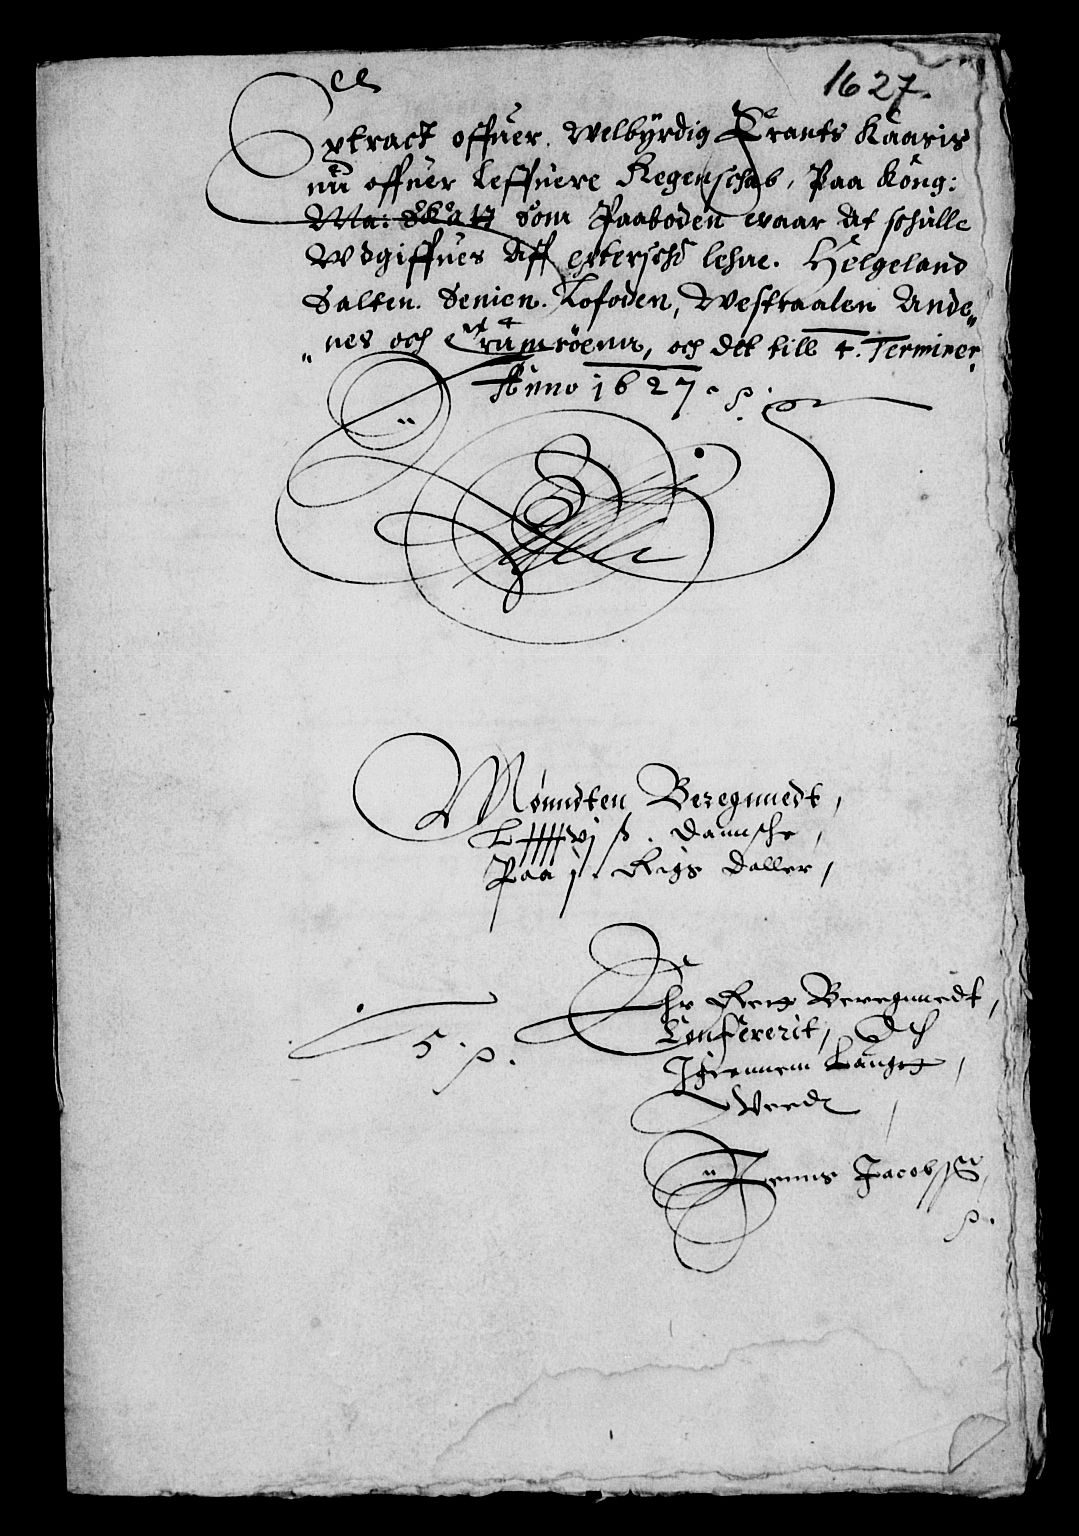 1627.
Extract offuer. Welbÿrdig Frants Kaasis
nu offuer leffuere Regenschab, Paa Kong:
Ma: Skatt Som Paaboden waar at schulle
Wdgiffues Aff epterschͤ lehne. Helgeland
Salten. Senien. Lofoden, Westraalen Ande„
„nes och Trumsöenn, och det till 4. Terminer
Anno 1627.
Mönndten Beregnnedt,
Lxxxxvj ß. dannsche,
Paa j. Rigs daller,
Ehr Rett Beregnnedt,
Confererit, Och
Igiennem Laugtt,
Werdt,
Jenns Jacobss